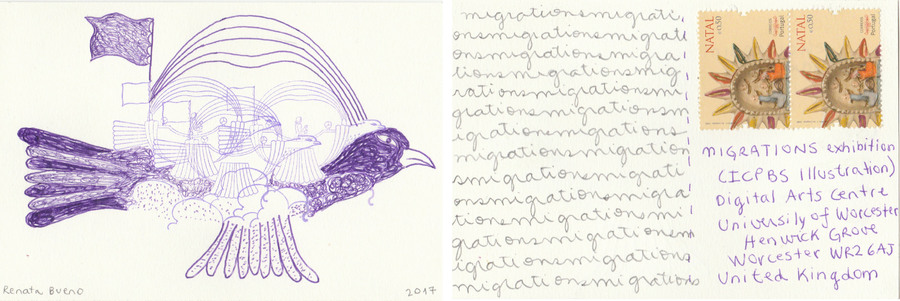 Renata Bueno
2017
migrationsmigrati
onsmigrationsmigrati
onsmigrationsmigra
tionsmigrationsmig
rationsmigrationsmi
grationsmigrationsm
igrationsmigrations
migrationsmigration
smigrationsmigrati
onsmigrationsmigra
tionsmigrationsmi
grationsmigrationsm
igrationsmigrations
migrationsmigrations
NATAL
€0,50
Portugal
NATAL
€0,50
Portugal
MIGRATIONS exhibition
(ICPBS Illustration)
Digital Arts Centre
University of Worcester
Henwick Grove
Worcester WR2 6AJ
United Kingdom